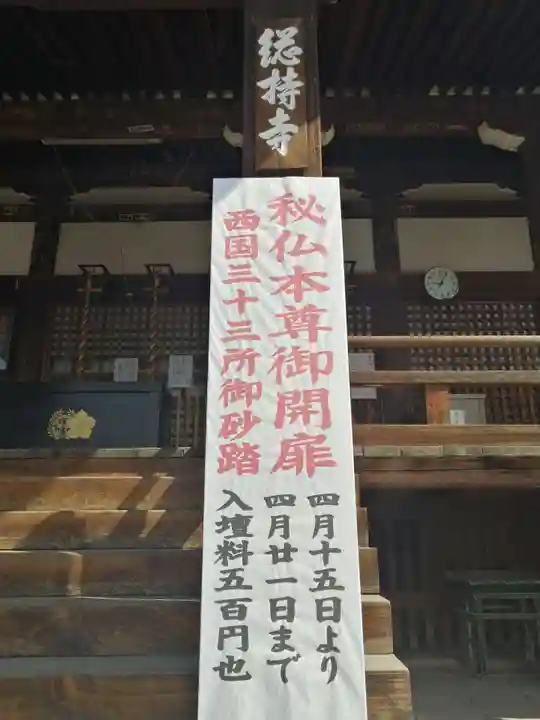 総持寺
秘仏本尊御開扉
西国三十三所御砂踏
四月十五日より
四月廿一日まで
入壇料五百円也